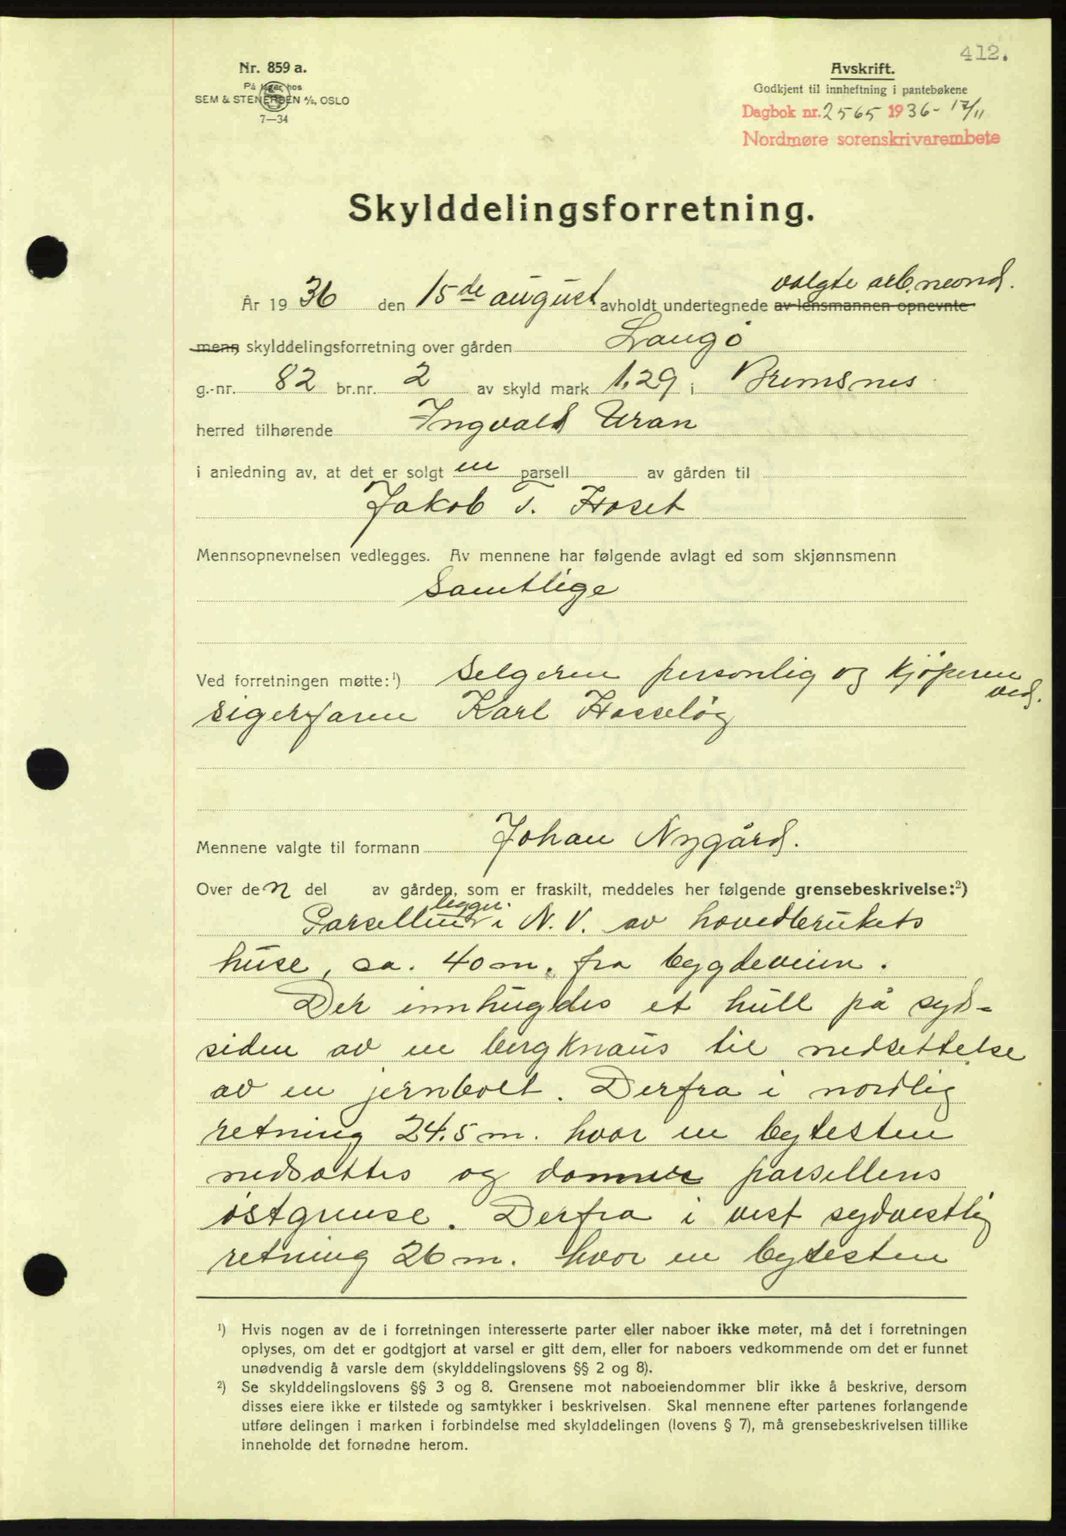 412.
Nr. 859 a.
På lager hos
SEM & STENERSEN A/S, OSLO
7—34
Avskrift.
Godkjent til innheftning i pantebøkene
Dagbok nr. 2565 1936- 17/11
Nordmøre sorenskrivarembete
Skylddelingsforretning.
valgte arb.neond.
År 19 36 den 15de august avholdt undertegnede av lensmannen opnevnte
menn skylddelingsforretning over gården Langö
g.-nr. 82 br.nr. 2 av skyld mark 1,29 i Bremsnes
herred tilhørende Ingvald Uran
i anledning av, at det er solgt en parsell av gården til
Jakob T. Hoset
Mennsopnevnelsen vedlegges. Av mennene har følgende avlagt ed som skjønnsmenn
Samtlige
Ved forretningen møtte:¹) Selgeren personlig og kjöperen
ved.
Karl Hasselög
Mennene valgte til formann Johan Nygård.
Over den del av gården, som er fraskilt, meddeles her følgende grensebeskrivelse:²)
legger
Parsellen i N.V. av hovedbrukets
huse, ca. 40 m. fra bygdeveien.
Der innhugdes et hull på syd-
siden av en bergknaus til nedsettelse
av en jernbolt. Derfra i nordlig
retning 24.5 m. hvor en bytesten
nedsattes og danner parsellens
östgrense. Derfra i vest sydvestlig
retning 26 m. hvor en bytesten
¹) Hvis nogen av de i forretningen interesserte parter eller naboer ikke møter, må det i forretningen
oplyses, om det er godtgjort at varsel er gitt dem, eller for naboers vedkommende om det er funnet
unødvendig å varsle dem (skylddelingslovens §§ 2 og 8).
²) Se skylddelingslovens §§ 3 og 8. Grensene mot naboeiendommer blir ikke å beskrive, dersom
disses eiere ikke er tilstede og samtykker i beskrivelsen. Skal mennene efter partenes forlangende
utføre delingen i marken i forbindelse med skylddelingen (lovens § 7), må grensebeskrivelsen tillike
inneholde det fornødne herom.